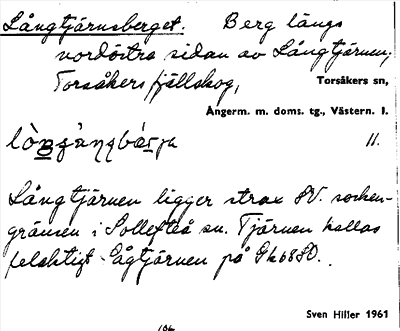 Långtjärnsberget. Berg längs
nordöstra sidan av Långtjärnen,
Torsåkers fjällskog,
Torsåkers sn,
Ångerm. m. doms. tg., Västern. l.
11.
Långtjärnen ligger strax SV. socken-
gränsen i Sollefteå sn. Tjärnen kallas
felaktigt Lågtjärnen på Gk 68 SO.
Sven Hiller 1961
106